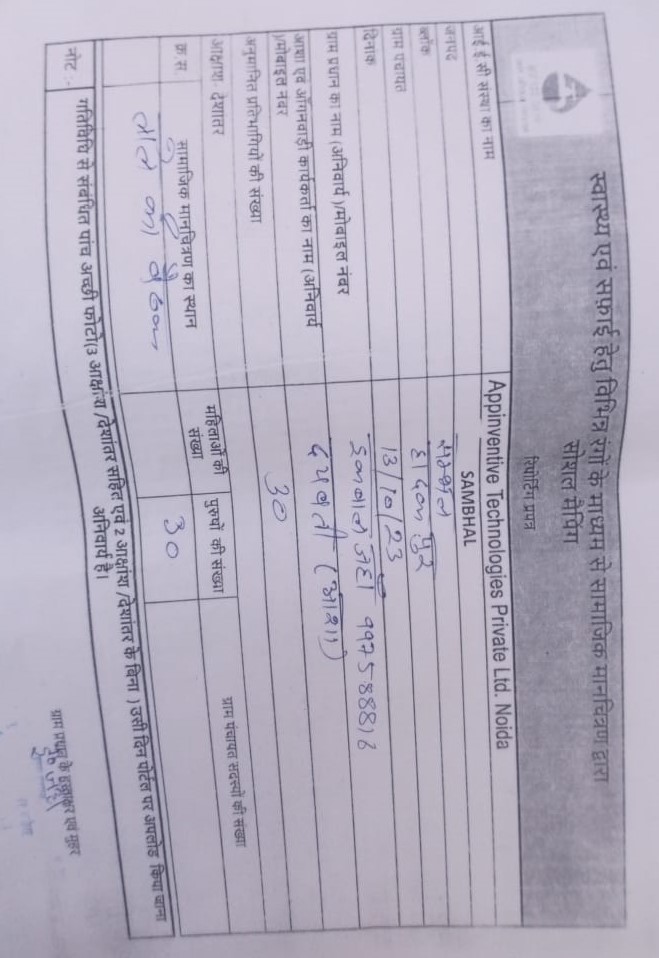 स्वास्थ्य एवं सफ़ाई हेतु विभिन्न रंगों के माध्यम से सामाजिक मानचित्रण द्वारा
सोशल मैपिंग
रिपोर्टिंग प्रपत्र
आई ई सी संस्था का नाम Appinventive Technologies Private Ltd. Noida
जनपद SAMBHAL
ब्लॉक सम्भल
ग्राम पंचायत
दिनांक 13/10/23
ग्राम प्रधान का नाम (अनिवार्य )/मोबाइल नंबर जहाँ
आशा एवं आँगनवाड़ी कार्यकर्ता का नाम (अनिवार्य (आशा)
)/मोबाइल नंबर
अनुमानित प्रतिभागियों की संख्या 30
आक्षांश/ देशांतर
क्र.स सामाजिक मानचित्रण का स्थान महिलाओं की संख्या पुरुषों की संख्या ग्राम पंचायत सदस्यों की संख्या
30
नोट :- गतिविधि से संबंधित पांच अच्छी फोटो(3 आक्षांश /देशांतर सहित एवं 2 आक्षांश /देशांतर के बिना ) उसी दिन पोर्टल पर अपलोड किया जाना
अनिवार्य है।
ग्राम प्रधान के हस्ताक्षर एवं मुहर